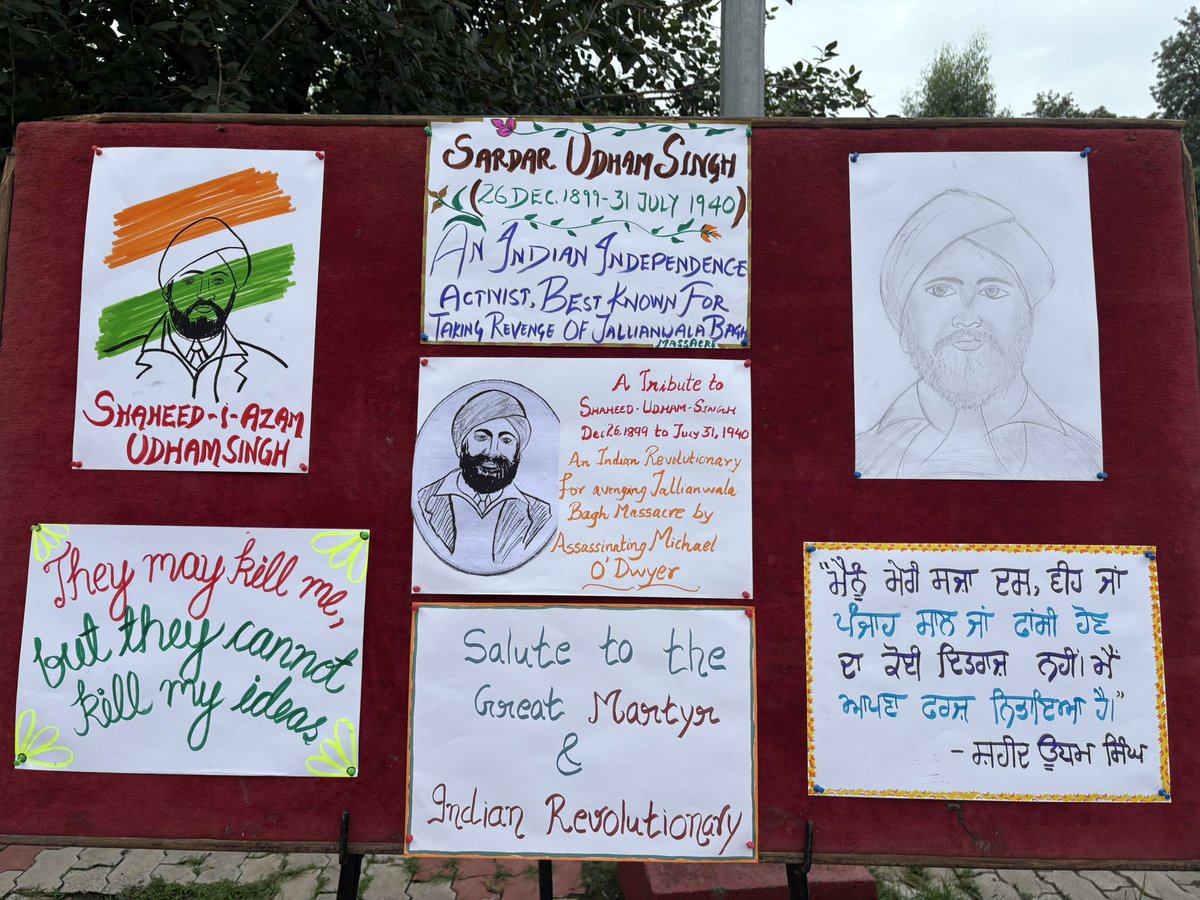 SHAHEED-i-AZAM
UDHAM SINGH
SARDAR UDHAM SINGH
(26 DEC. 1899-31 JULY 1940)
AN INDIAN INDEPENDENCE
ACTIVIST, BEST KNOWN FOR
TAKING REVENGE OF JALLIANWALA BAGH
MASSACRE
A Tribute to
SHAHEED-UDHAM-SINGH
Dec 26, 1899 to July 31, 1940
An Indian Revolutionary
for avenging Jallianwala
Bagh Massacre by
Assassinating Michael
O'Dwyer
They may kill me,
but they cannot
kill my ideas
Salute to the
Great Martyr
&
Indian Revolutionary
"ਮੈਨੂੰ ਮੇਰੀ ਸਜ਼ਾ ਦਸ, ਵੀਹ ਜਾਂ
ਪੰਜਾਹ ਸਾਲ ਜਾਂ ਫਾਂਸੀ ਹੋਣ
ਦਾ ਕੋਈ ਇਤਰਾਜ਼ ਨਹੀਂ। ਮੈਂ
ਆਪਣਾ ਫਰਜ਼ ਨਿਭਾਇਆ ਹੈ।"
- ਸ਼ਹੀਦ ਊਧਮ ਸਿੰਘ